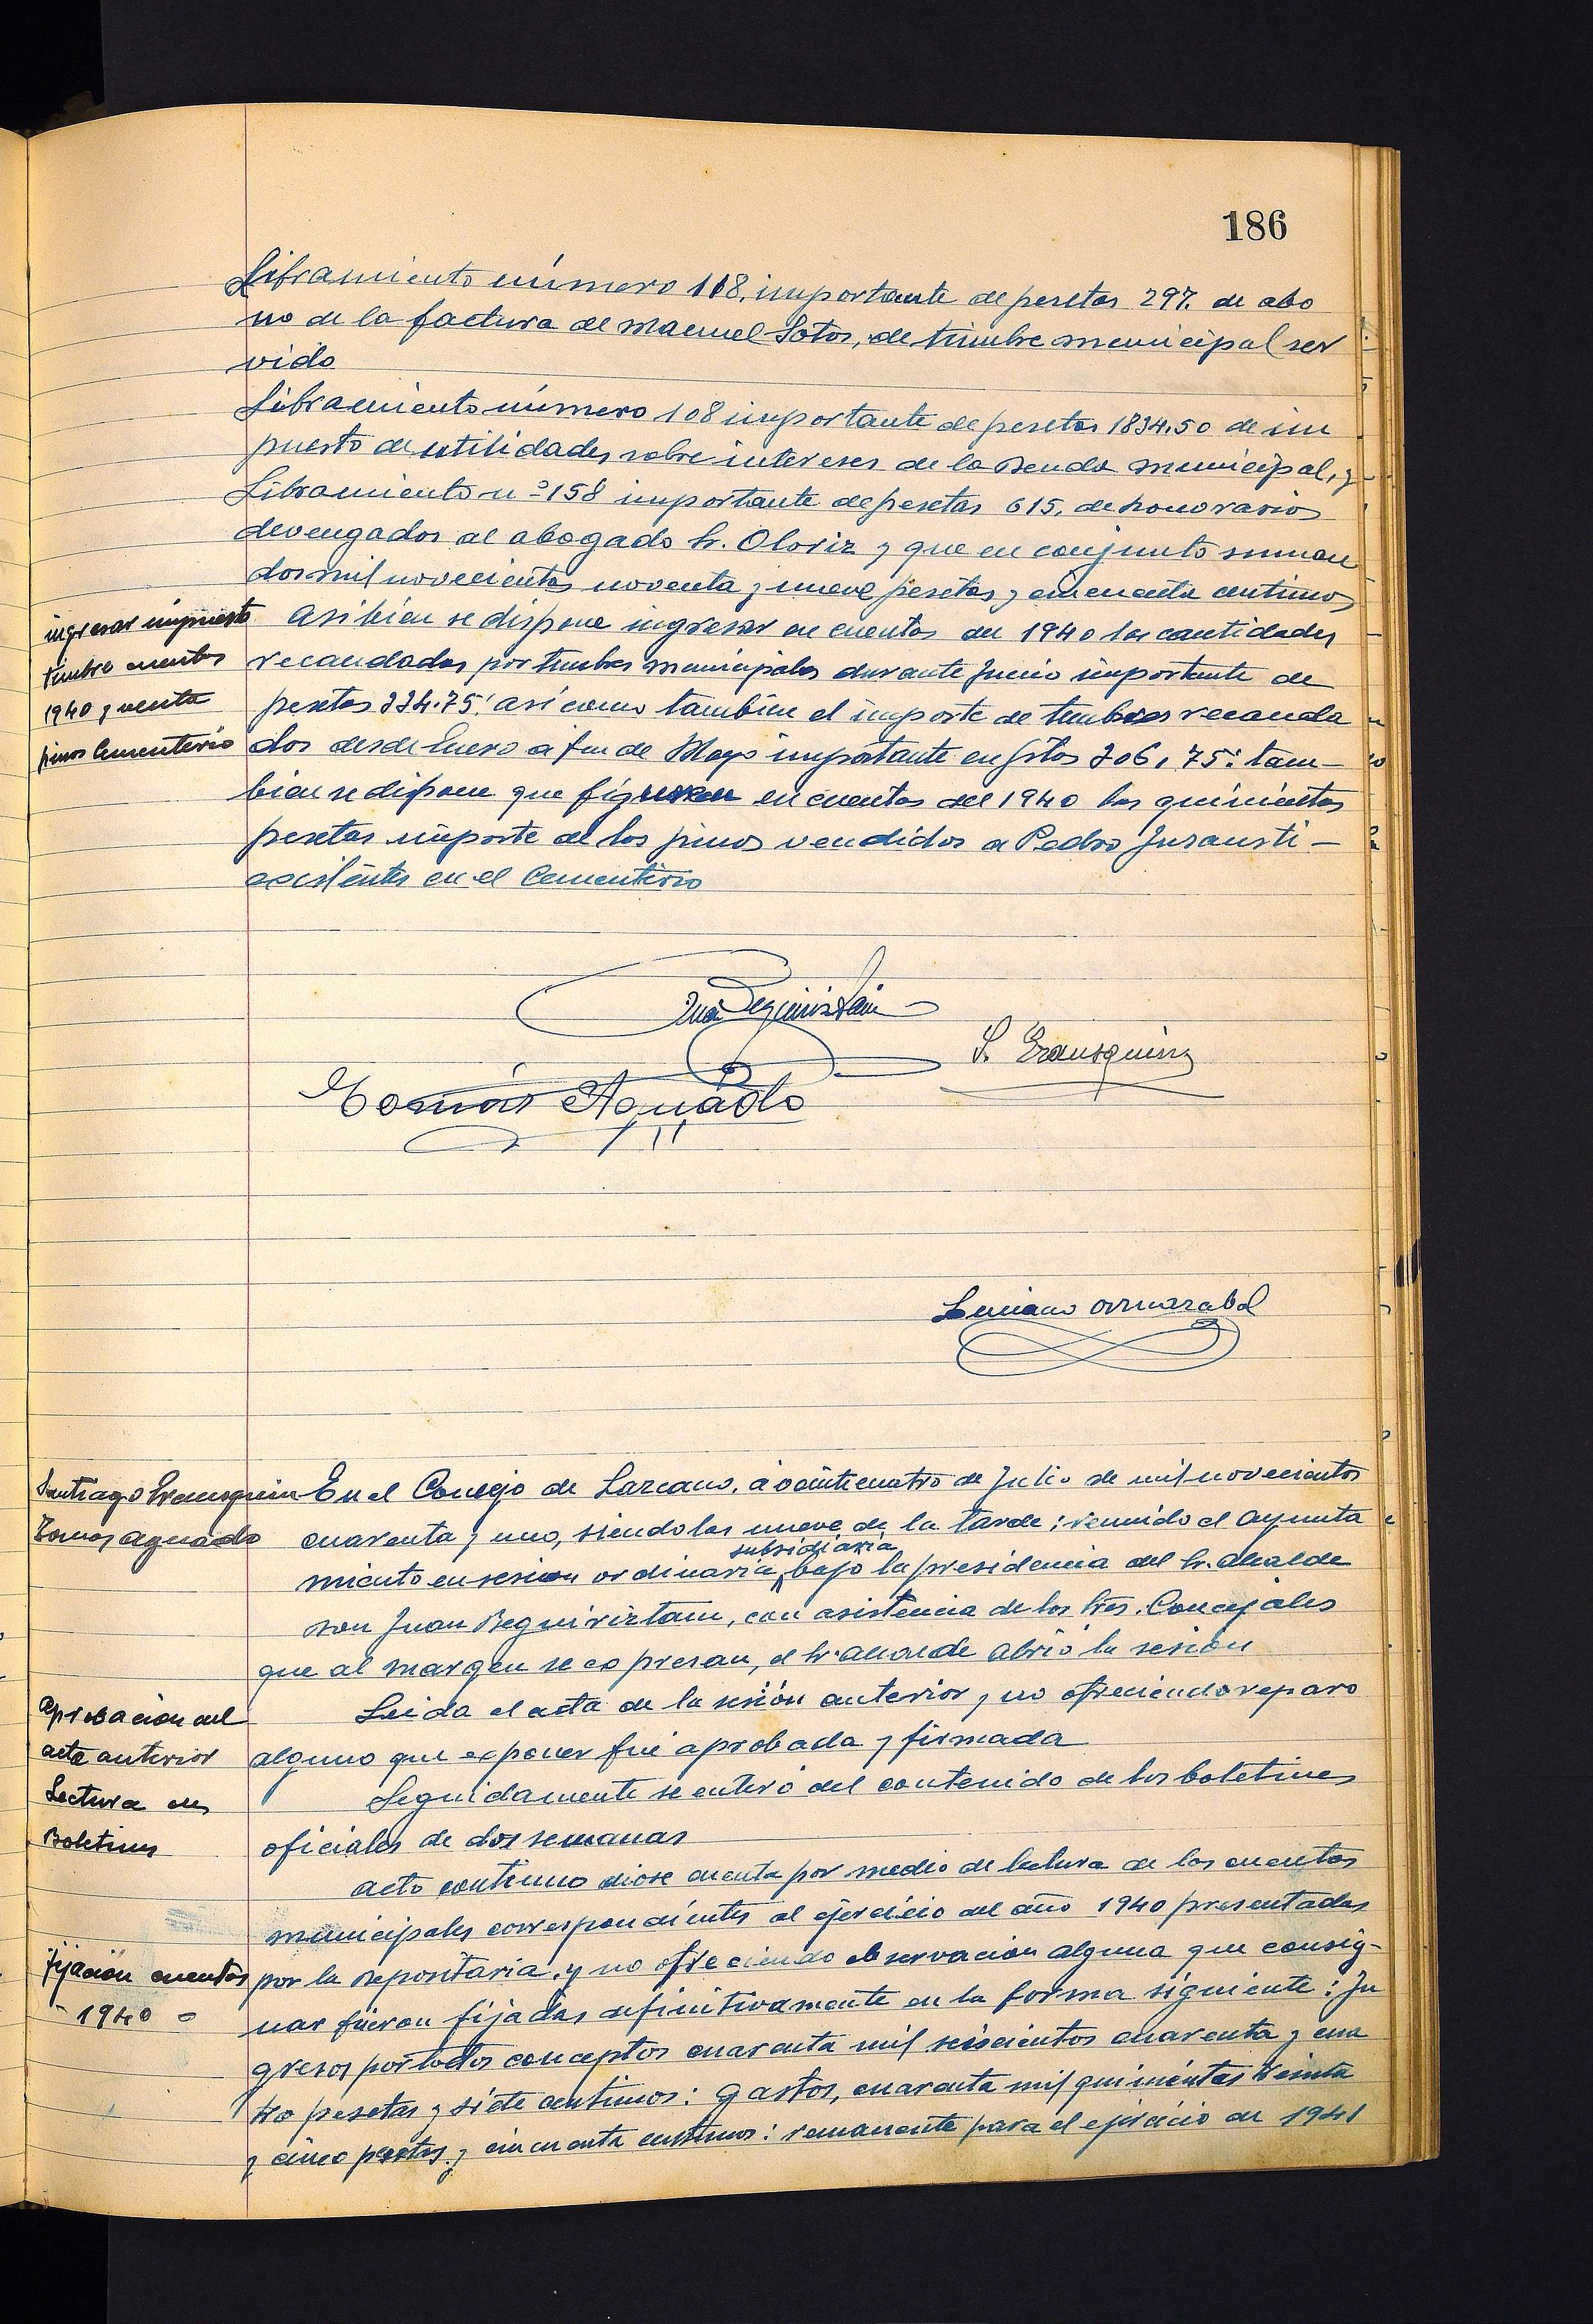 186
Libramiento número 118, importante de pesetas 297. de abo
no de la factura de Manuel Sotos, de timbre municipal ser
vido
Libramiento número 108 importante de pesetas 1834.50 de im
puesto de utilidades sobre intereses de la Deuda municipal, y
Libramiento nº 158 importante de pesetas 615, de honorarios
devengados al abogado Sr. Oloriz y que en conjunto suman
dos mil novecientas noventa y nueve pesetas y cincuenta centimos
ingresar impuesto
timbre cuentas
1940 y venta
pinos Cementerio
Asi bien se dispone ingresar en cuentas del 1940 las cantidades
recaudadas por timbres municipales durante Junio importante de
pesetas 334.75: así como tambien el importe de timbres recauda
dos desde Enero a fin de Mayo importante en ptas 206, 75: tam-
bien se dispone que figuren en cuentas del 1940 las quinientas
pesetas importe de los pinos vendidos a Pedro Insausti-
existentes en el Cementerio
Juan Beguiristain
S. Erausquin
Tomás Aguado
Luciano Ormazabal
Santiago Erausquin
Tomas Aguado
En el Concejo de Lazcano, a veinticuatro de Julio de mil novecientos
cuarenta y uno, siendo las nueve de la tarde: reunido el Ayunta
subsidiaria
miento en sesion ordinaria bajo la presidencia del Sr. Alcalde
Don Juan Beguiriztain, con asistencia de los Sres. Concejales
que al margen se expresan, el Sr. Alcalde abrió la sesión
Aprobacion del
acta anterior
Leida el acta de la sesión anterior y no ofreciendo reparo
alguno que exponer fué aprobada y firmada
Lectura de
Boletines
Seguidamente se enteró del contenido de los boletines
oficiales de dos semanas
Acto continuo diose cuenta por medio de lectura de las cuentas
municipales correspondientes al ejercicio del año 1940 presentadas
fijación cuentas
- 1940 -
por la Depositaria, y no ofreciendo observacion alguna que consig-
nar fueron fijadas definitivamente en la forma siguiente: In
gresos por todos conceptos cuarenta mil seiscientos cuarenta y cua
tro pesetas y siete centimos: Gastos, cuarenta mil quinientas treinta
y cinco pesetas y cincuenta centimos: remanente para el ejercicio de 1941